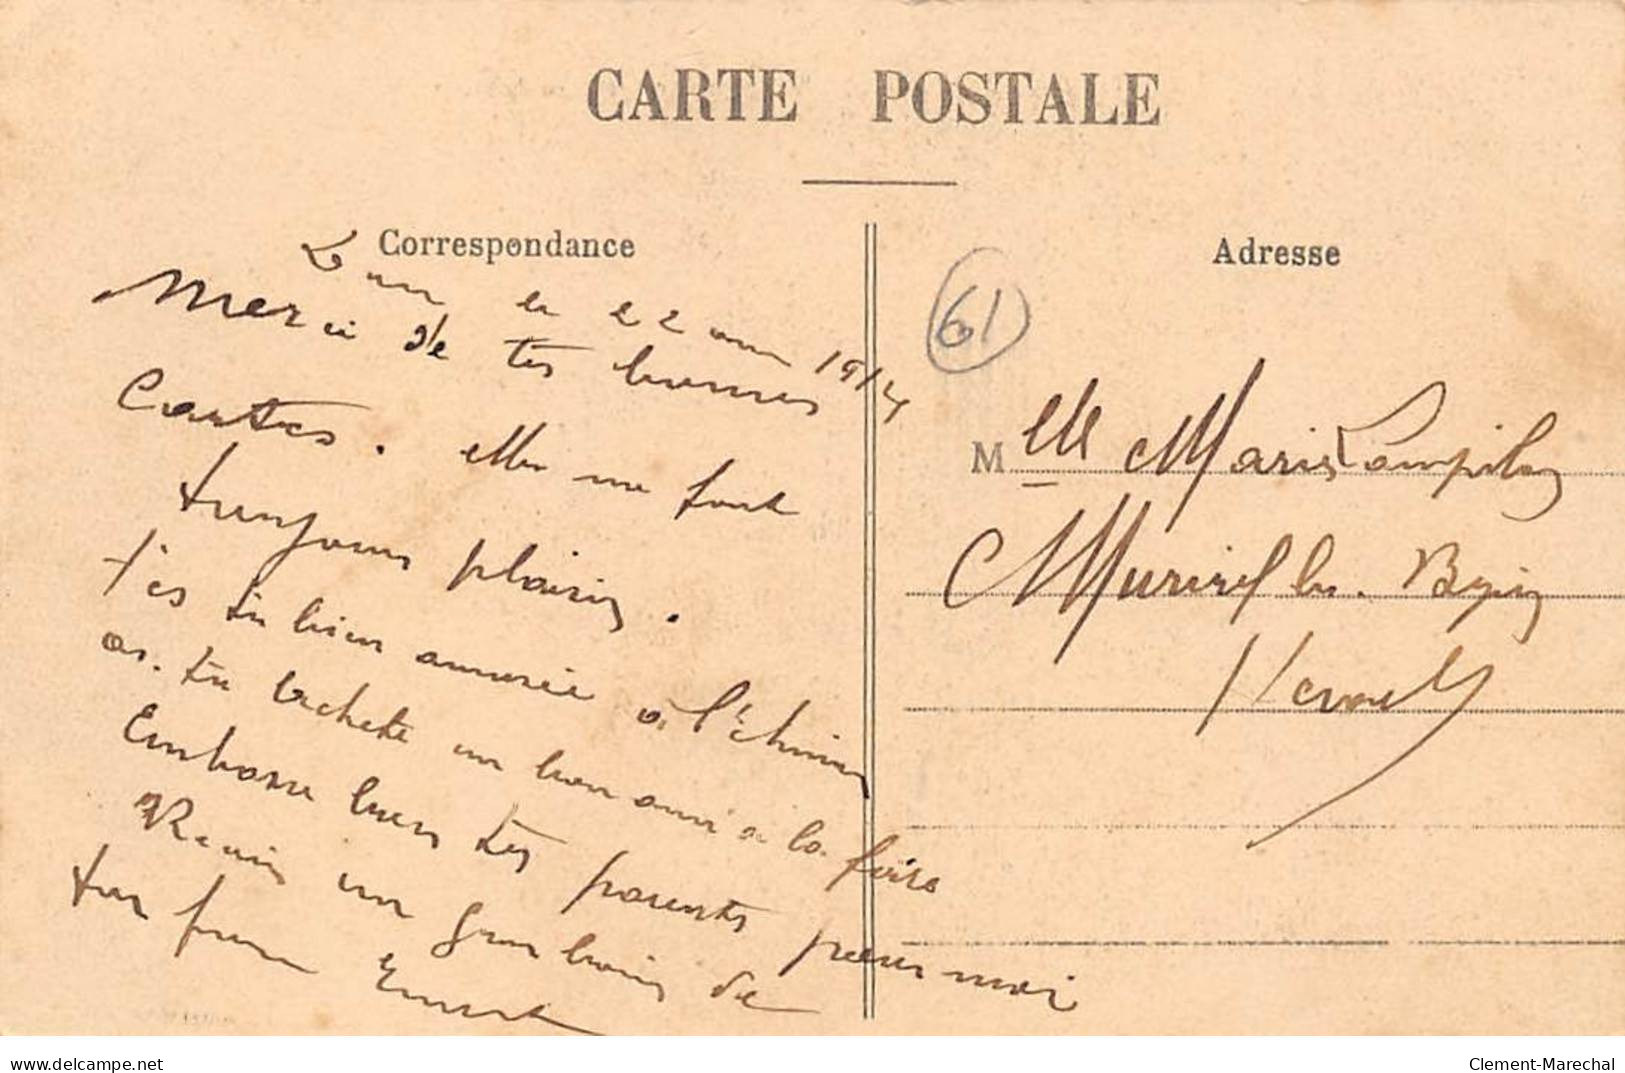 CARTE POSTALE
Correspondance
Adresse
61
le 22 1914
Merci de tes bonnes
Cartes. elle me font
tunjours plaisir.
t'es tu bien amusée à
as. tu acheté un bon ami a la foire
Embrasse bien tes parents pour moi
Recois un gros baiser de
ton frere Ernest
Mlle Marie
Murviel les Beziers
Herault
delcampe.net
Clement-Marechal